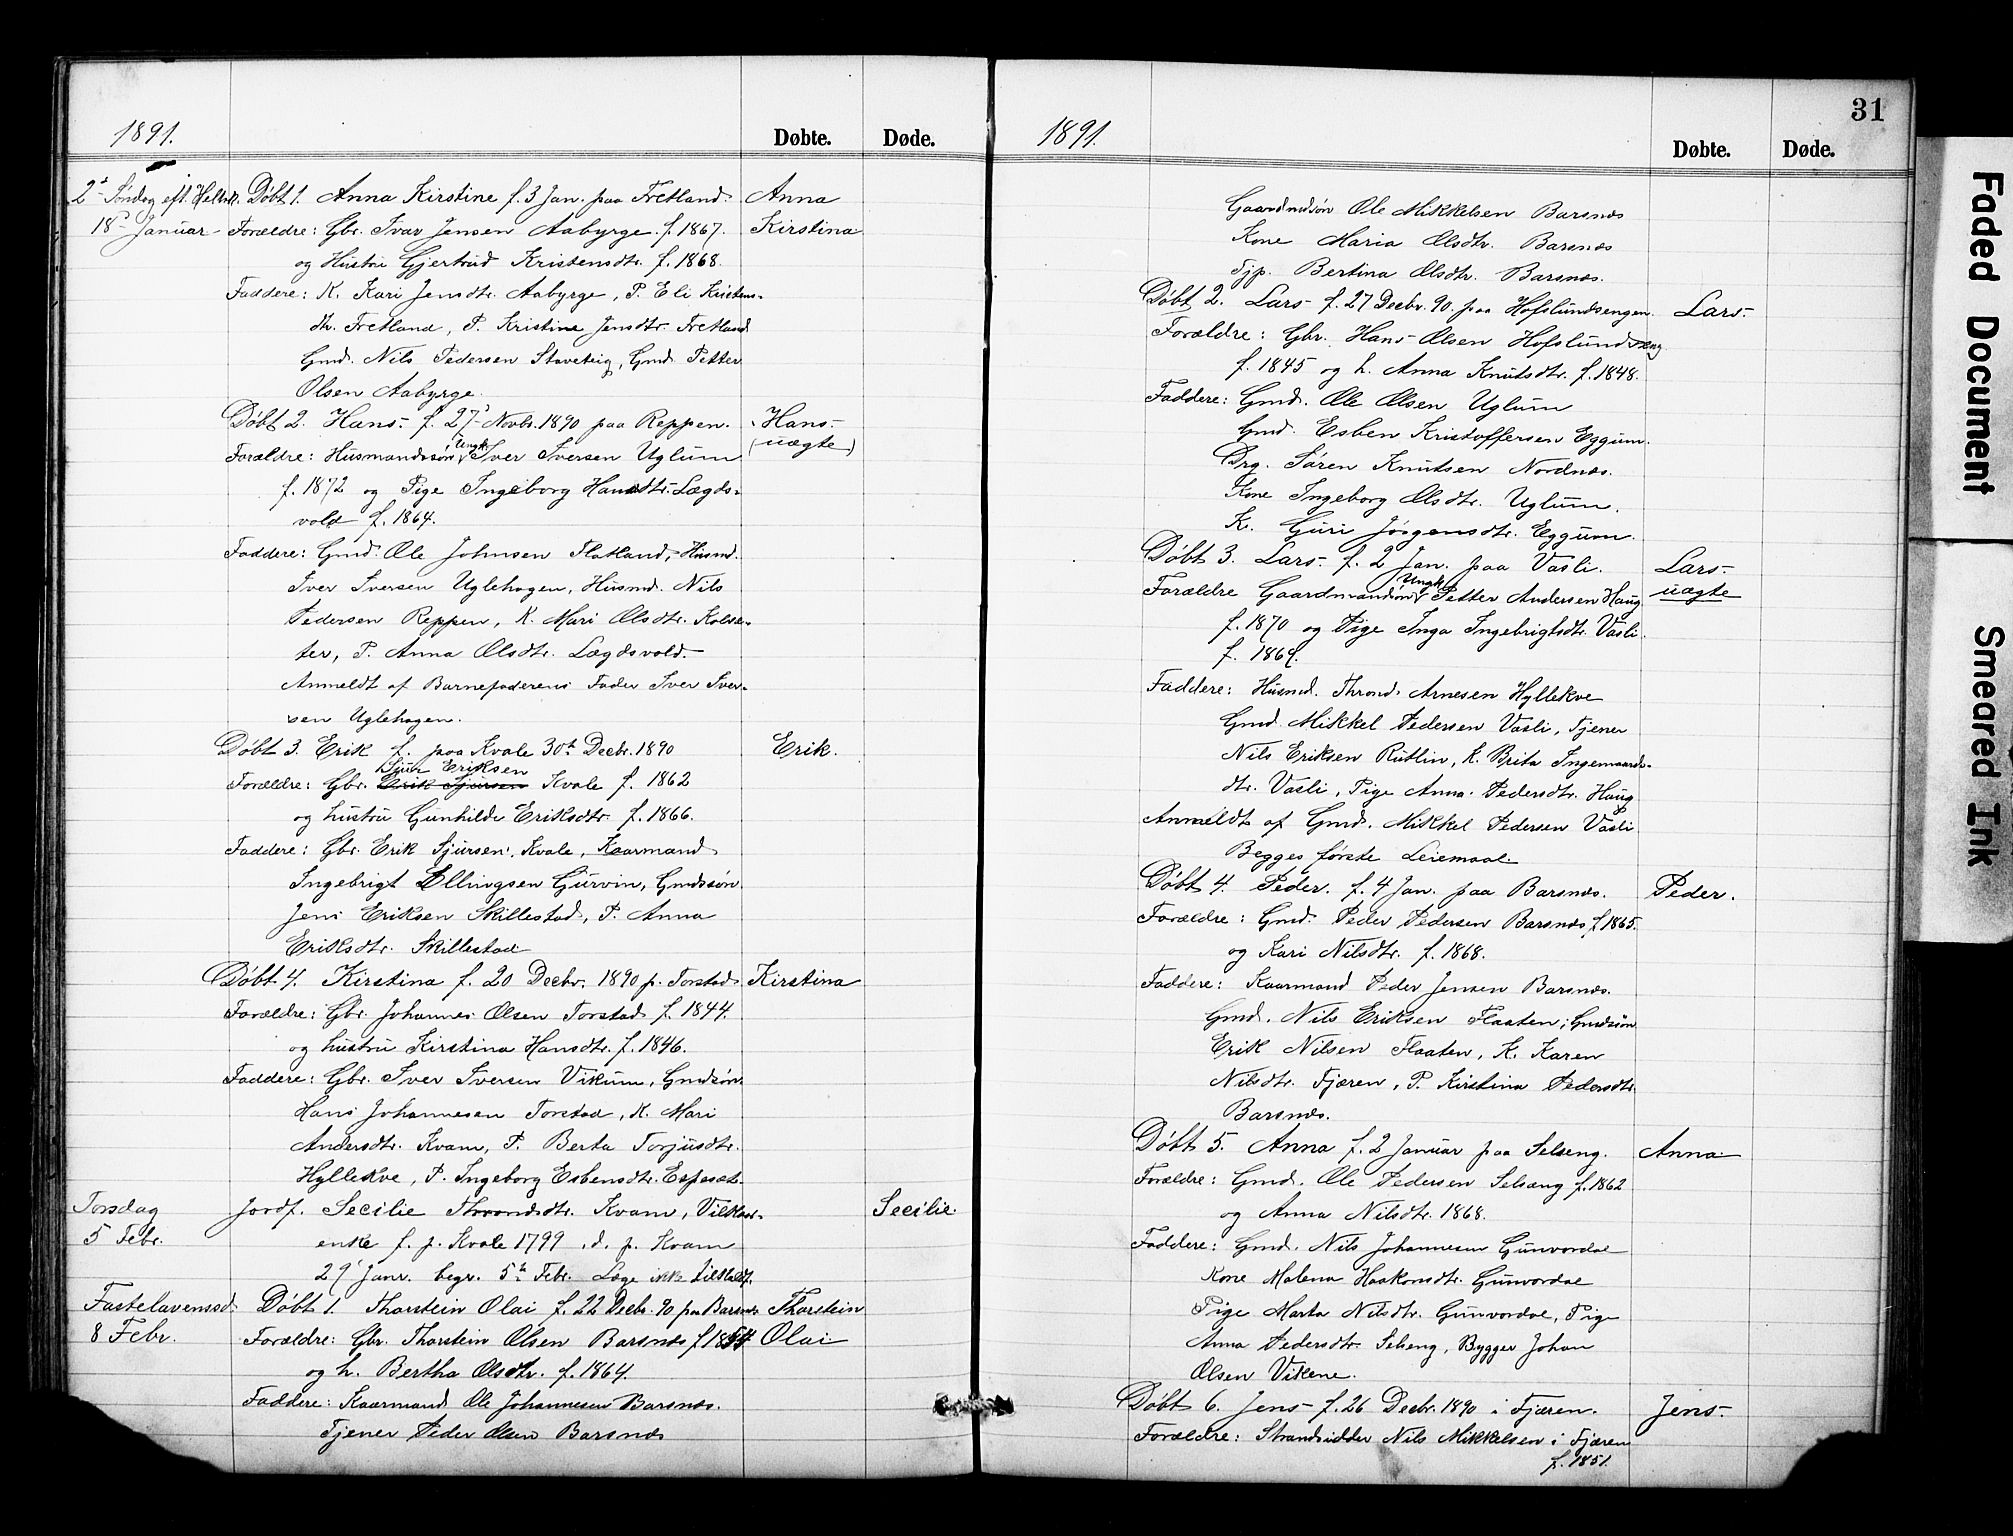 1891.
Døbte.
Døde.
2d Søndag eft. Helt3k. Døbt 1. Anna Kirstine f. 3 Jan. paa Fretland. Anna
18d Januar Forældre: Gbr. Ivar Jensen Aabyrge. f. 1867. Kirstina
og Hustru Gjertrud Kristensdtr. f. 1868.
Faddere: K. Kari Jensdtr. Aabyrge, P. Eli Kristens-
dtr. Fretland, P. Kristine Jensdtr. Fretland
Gmd. Nils Pedersen Staveteig, Gmd. Petter
Olsen Aabyrge.
Døbt 2. Hans f. 27d Novbr. 1890 paa Reppen. Hans
(uægte)
Forældre: Husmandssøn, Ungk. Iver Iversen Uglum
f. 1872 og Pige Ingeborg Hansdtr. Lægds-
vold f. 1864.
Faddere: Gmd. Ole Johnsen Flatland, Husmd.
Iver Iversen Uglehagen, Husmd. Nils
Pedersen Reppen, K. Mari Olsdtr. Kolse-
ter, P. Anna Olsdtr. Lægdsvold.
Anmeldt af Barnefaderens Fader Iver Iver-
sen Uglehagen.
Døbt 3. Erik f. paa Kvale 30te Decbr. 1890 Erik.
Sjur Eriksen
Forældre: Gbr. Erik Sjursen Kvale f. 1862
og hustru Gunhilde Eriksdtr. f. 1866.
Faddere: Gbr. Erik Sjursen Kvale, Kaarmand
Ingebrigt Ellingsen Gurvin, Gmdssøn
Jens Eriksen Skillestad, P. Anna
Eriksdtr. Skillestad
Døbt 4. Kirstina f. 20 Decbr. 1890 p. Torstad. Kirstina
Forældre: Gbr. Johannes Olsen Torstad f. 1844.
og hustru Kirstina Hansdtr. f. 1846.
Faddere: Gbr. Iver Iversen Vikum, Gmdsøn
Hans Johannesen Torstad, K. Mari
Andersdtr. Kvam, P. Berta Torjusdtr.
Hyllekve, P. Ingeborg Esbensdtr. Espesæt.
Torsdag Jordf. Secilie Throndsdtr. Kvam, Vilkaar- Secilie.
5 Febr. enke f. p. Kvale 1799, d. p. Kvam
29 Janr. begr. 5te Febr. Læge ikke tilkaldt.
Fastelavenssd. Døbt 1. Thorstein Olai f. 22 Decbr. 90 paa Barsnes Thorstein
8 Febr. Forældre: Gbr. Thorstein Olsen Barsnes f. 1854 Olai
og h. Bertha Olsdtr. f. 1864.
Faddere: Kaarmand Ole Johannesen Barsnes.
Tjener Peder Olsen Barsnes
31
1891.
Døbte.
Døde.
Gaardmdsøn Ole Mikkelsen Barsnes
Kone Maria Olsdtr. Barsnes
Tjp. Bertina Olsdtr. Barsnes.
Døbt 2. Lars f. 27 Decbr. 90. paa Hofslundsengen. Lars
Forældre: Gbr. Hans Olsen Hofslundseng
f. 1845 og h. Anna Knutsdtr. f. 1848.
Faddere: Gmd. Ole Olsen Uglum
Gmd. Esben Kristoffersen Eggum.
Drg. Søren Knutsen Nordnes.
Kone Ingeborg Olsdtr. Uglum.
K. Guri Jørgensdtr. Eggum.
Døbt 3. Lars f. 2 Jan. paa Vasli. Lars
Forældre Gaardmandsøn, Ungk. Petter Andersen Haug uægte
f. 1870 og Pige Inga Ingebrigtsdtr. Vasli.
f. 1864.
Faddere: Husmd. Thrond Arnesen Hyllekve
Gmd. Mikkel Pedersen Vasli, Tjener
Nils Eriksen Rutlin, K. Brita Ingemaards-
dtr. Vasli, Pige Anna Pedersdtr. Haug
Anmeldt af Gmd. Mikkel Pedersen Vasli
Begges første Leiemaal.
Døbt 4. Peder. f. 4 Jan. paa Barsnes. Peder.
Forældre: Gmd. Peder Pedersen Barsnes, f. 1865.
og Kari Nilsdtr. f. 1868.
Faddere: Kaarmand Peder Jensen Barsnes.
Gmd. Nils Eriksen Flaaten, Gmdsøn
Erik Nilsen Flaaten, K. Karen
Nilsdtr. Fjæren, P. Kirstina Pedersdtr.
Barsnes.
Døbt 5. Anna f. 2 Januar paa Selseng. Anna
Forældre: Gmd. Ole Pedersen Selseng f. 1862
og Anna Nilsdtr. 1868.
Faddere: Gmd. Nils Johannesen Gunvordal
Kone Malena Haakonsdtr. Gunvordal
Pige Marta Nilsdtr. Gunvordal, Pige
Anna Pedersdtr. Selseng, Bygger Johan
Olsen Vikene.
Døbt 6. Jens f. 26 Decbr. 1890 i Fjæren. Jens
Forældre: Strandsidder Nils Mikkelsen i Fjæren
f. 1851.
Faded Document
Smeared Ink